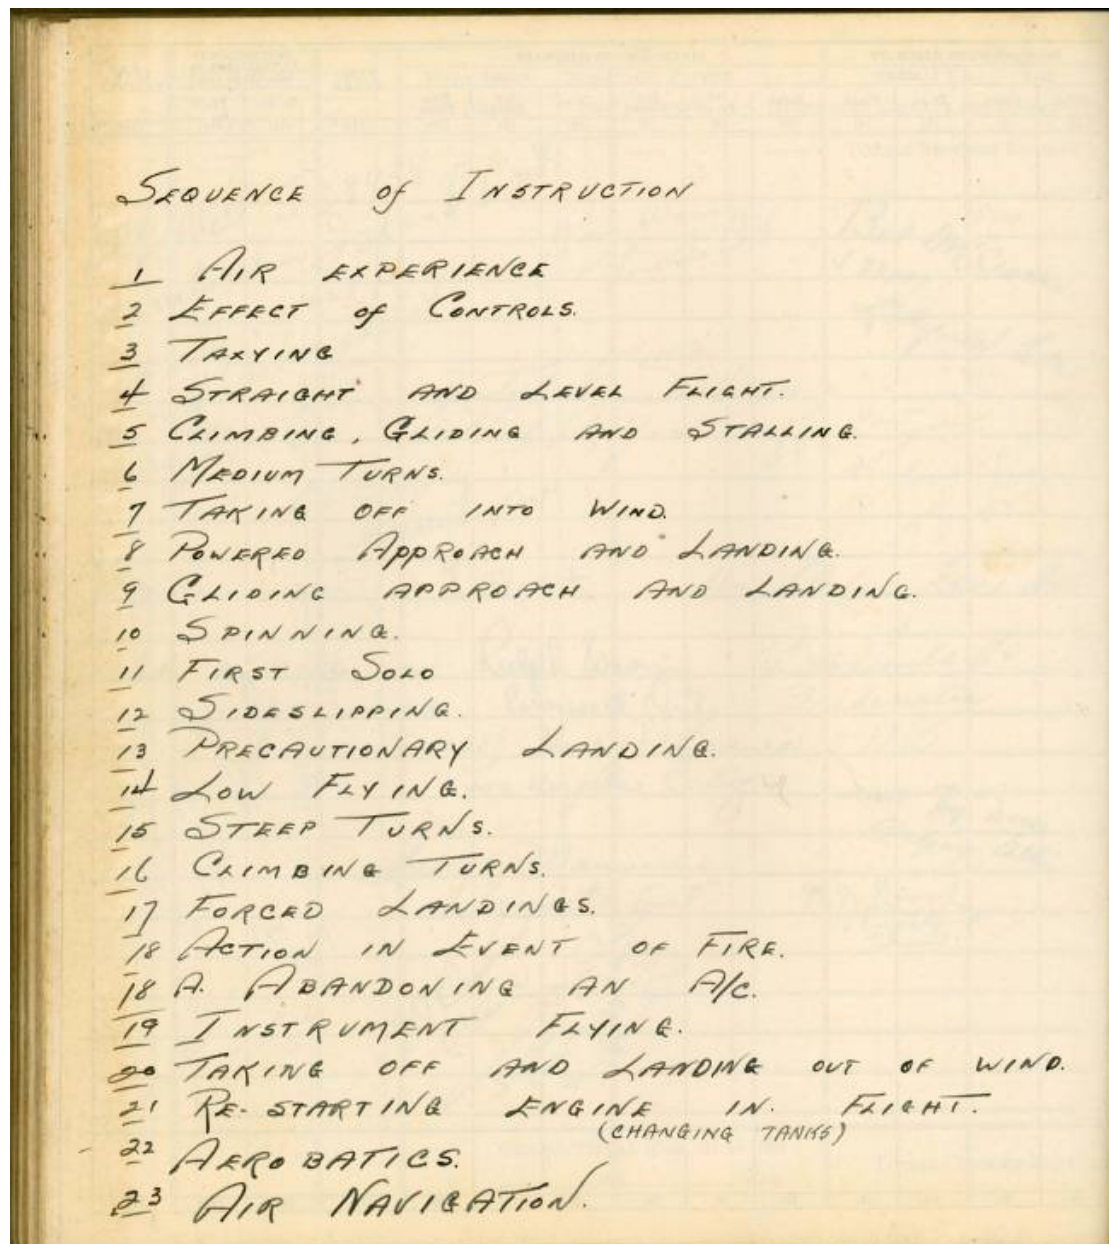 SEQUENCE of INSTRUCTION
1 AIR EXPERIENCE
2 EFFECT of CONTROLS.
3 TAXYING
4 STRAIGHT AND LEVEL FLIGHT.
5 CLIMBING, GLIDING AND STALLING.
6 MEDIUM TURNS.
7 TAKING OFF INTO WIND.
8 POWERED APPROACH AND LANDING.
9 GLIDING APPROACH AND LANDING.
10 SPINNING.
11 FIRST SOLO
12 SIDESLIPPING.
13 PRECAUTIONARY LANDING.
14 LOW FLYING.
15 STEEP TURNS.
16 CLIMBING TURNS.
17 FORCED LANDINGS.
18 ACTION IN EVENT OF FIRE.
18 A. ABANDONING AN A/C.
19 INSTRUMENT FLYING.
20 TAKING OFF AND LANDING OUT OF WIND.
21 RE-STARTING ENGINE IN. FLIGHT.
(CHANGING TANKS)
22 AEROBATICS.
23 AIR NAVIGATION.